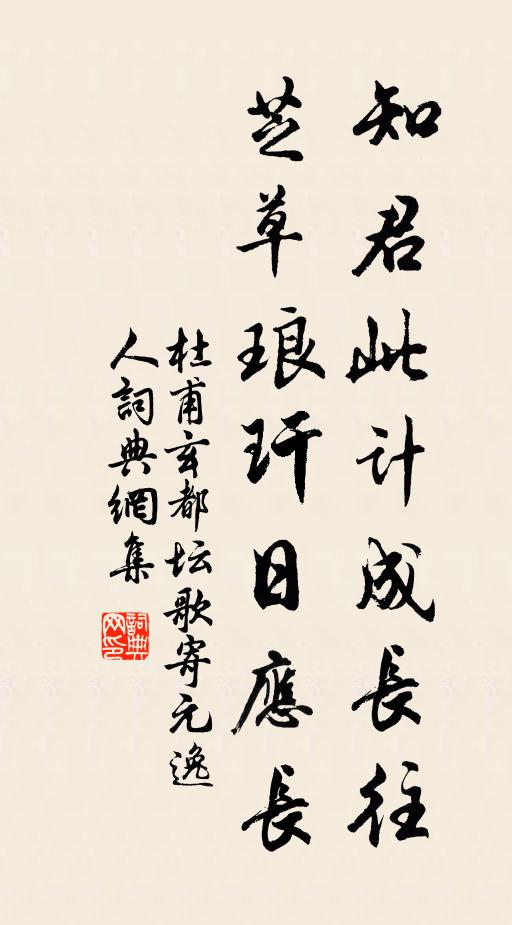 知君此计成長往
芝草琅玕日應長
杜甫玄都坛歌寄元逸
人詞典網集
詞典
网印